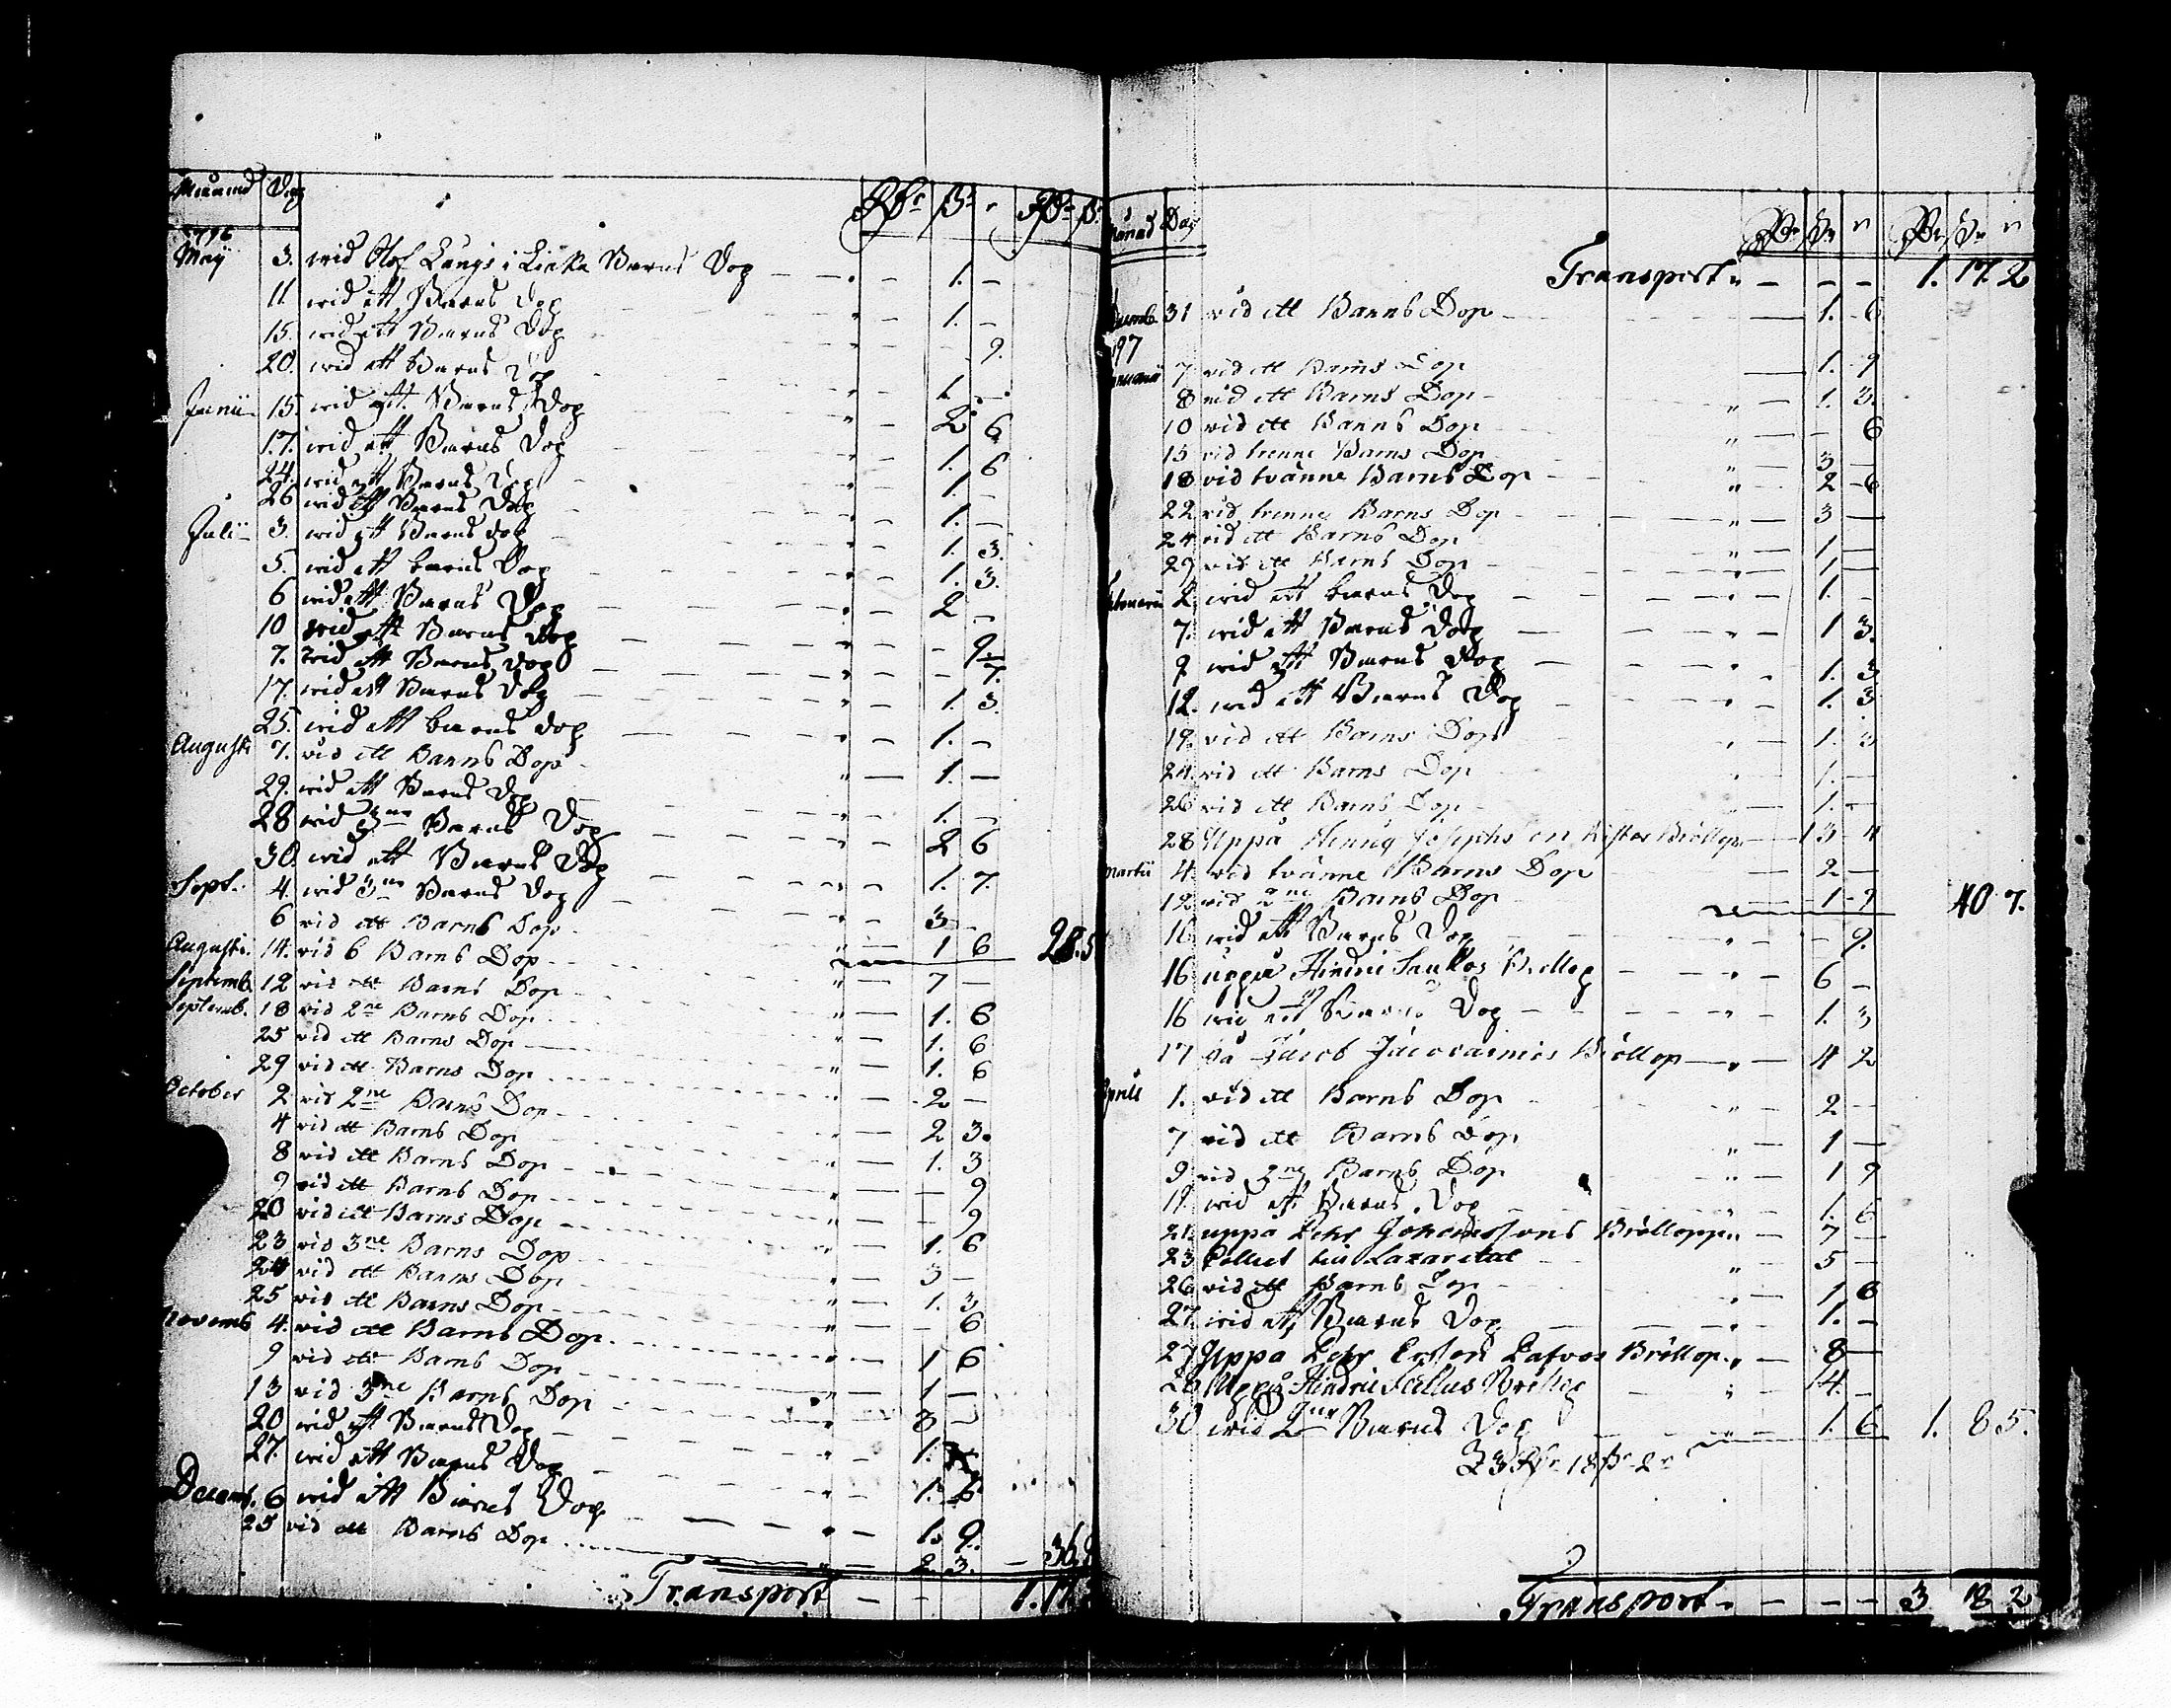 Månad Dag Rdr ß r Rdr ß
1796
Maij 3. wid Olof Längs i Linka Barns Dop 1. –
11 wid ett Barns Dop 1. –
15. wid ett Barns Dop 9.
20. wid ett Barns Dop 1.
Junii 15. wid ett Barns Dop 2 6
17. wid ett Barns Dop 1. 6
24. wid ett Barns Dop 1. –
26 wid ett Barns Dop 1. –
Julii 3. wid ett Barns dop 1. 3.
5. wid ett barns Dop 1. 3.
6 wid ett Barns Dop 2 –
10 wid ett Barns Dop 9
7. wid ett Barns Dop 7.
17. wid ett Barns Dop 1. 3.
25. wid ett barns dop 1. –
Augusti 7. vid ett Barns Dop 1. –
29. wid ett Barns Dop 1. –
28 wid 3ne Barns Dop 2 6
30. wid ett Barns Dop 1. 7.
Sept. 4. wid 3ne Barns Dop 3
6 vid ett Barns Dop 1 6 28.5
Augusti. 14. vid 6 Barns Dop 7 –
Septemb. 12 vid ett Barns Dop 1. 6
Septemb. 18 vid 2ne Barns Dop 1. 6
25 vid ett Barns Dop 1. 6
29 vid ett Barns Dop 2 –
October 2 vid 2ne Barns Dop 2 3.
4 vid ett Barns Dop 1. 3
8 vid ett Barns Dop – 9
9 vid ett Barns Dop – 9
20 vid ett Barns Dop 1. 6
23 vid 3ne Barns Dop 3 –
24 vid ett Barns Dop 1. 3
25 vid ett Barns Dop 6
Novemb 4. vid ett Barns Dop. 1 6
9 vid ett Barns Dop 1 –
13 vid 3ne Barns Dop 3 –
20 wid ett Barns Dop 1.
27. wid ett Barns Dop 1. 6
Decemb. 6 wid ett Barns Dop 1. 9.
25 vid ett Barns Dop 2. 3. 36.
Transport 1. 17.
Månad Dag Rdr ß r Rdr ß r
Transport 1. 17. 2
31 vid ett Barns Dop 1. 6
97
7 vid ett Barns Dop 1. 9
8 vid ett Barns Dop 1. 3.
10 vid ett Barns Dop 6
15 vid trenne Barns Dop 3 –
18 vid tvänne Barns Dop 2 6
22 vid trenne Barns Dop 3 –
24 vid ett Barns Dop 1 –
29 vid ett Barns Dop 1 –
Februarii 2. wid ett barns Dop 1. –
7. wid ett Barns Dop 1 3.
9 wid ett Barns Dop 1. 3
12. wid ett Barns Dop 1. 3
19. vid ett Barns Dop 1. 3
24. vid ett Barns Dop 1. –
26 vid ett Barns Dop 1. –
28 Uppå Henriq Josephs Bröllop 13 4
Martii 4. vid tvänne Barns Dop 2 –
12 vid 2ne Barns Dop 1 9 40 7.
16 wid ett Barns Dop 9.
16 uppå Bröllop 6 –
16 wid ett Barns Dop 1. 3
17 på Jacob Bröllop 4 2
Aprils 1. vid ett Barns Dop 2 –
7 vid ett Barns Dop 1 –
9 vid 2ne Barns Dop 1 9
11. wid ett Barns Dop 1. 6
21. uppå Pehr Johanssons Bröllopp 7 –
23 Collect till Lazarettet 5 –
26 vid ett Barns Dop 1 6
27. wid ett Barns Dop 1. –
27 Uppå Pehr Bröllop 8 –
28 Uppå Hindric Bröllop 14. –
30 wid 2ne Barns Dop 1. 6 1. 8 5.
3 Rdr 18 ß 2 r
Transport 3 18 2